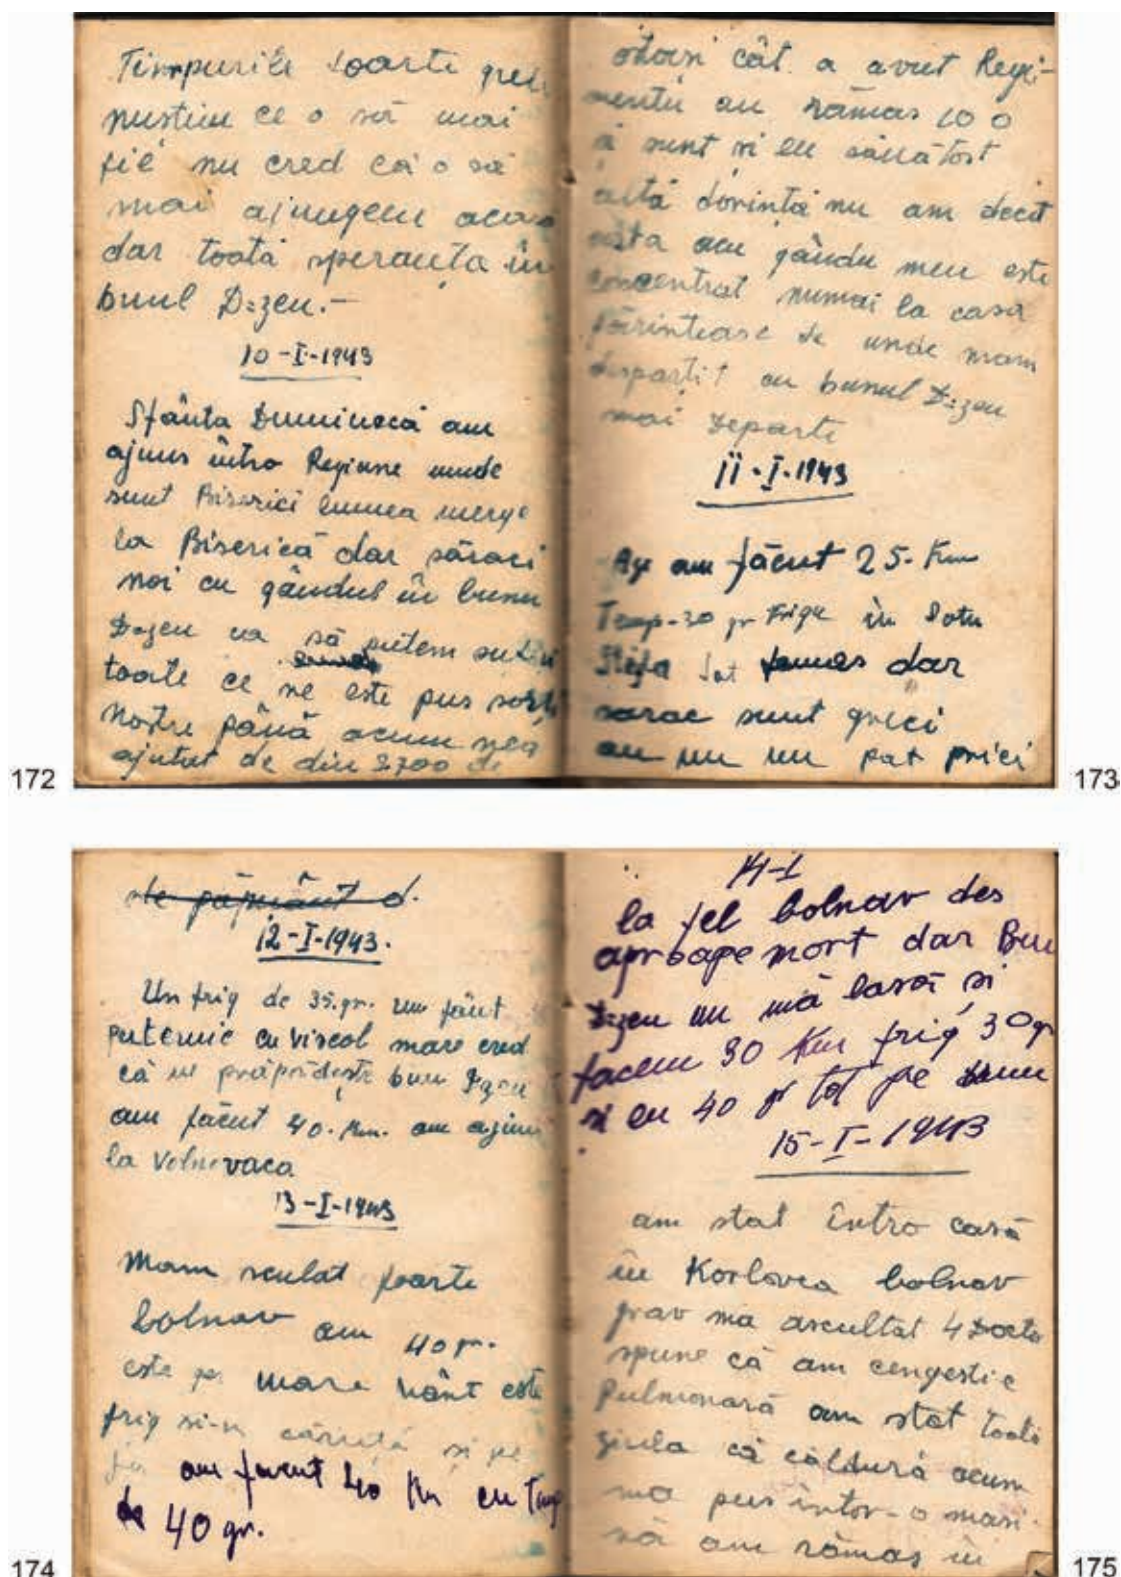 Timpurile foarte grele
nustim ce o să mai
fie nu cred că o să
mai ajungem acasa
dar toată speranța în
bunul D-zeu.-
10-I-1943
Sfânta Duminecă am
ajuns întro Regiune unde
sunt Biserici lumea merge
la Biserică dar săraci
noi cu gândul în bunu
D-zeu va să putem
toate ce ne este pus sorti
nostre până acum nea
ajutat de din 2700 de
172
ostași cât a avut Regi-
mentu au rămas 100
si sunt si eu sănătost
altă dorință nu am decit
asta acu gându meu este
concentrat numai la casa
părinteasc de unde mam
despartit cu bunul D-zeu
mai Departe
11-I-1943
am făcut 25-Km
Temp-30 gr Frigu în Satu
Sat dar
sarac sunt greci
au nu un pat prici
173
ste pământ d.
12-I-1943.
Un frig de 35.gr. un
puternic cu viscol mare cred
că ne prăpădește bunu D-zeu
am făcut 40.Km. am ajuns
la Volnovaca
13-I-1943
Mam sculat foarte
bolnav am 40 gr.
este ger mare vânt este
frig si-n căruță si pe
jos am facut 40 Km cu Temp
de 40 gr.
174
14-I
la fel bolnav des
aproape mort dar Bunu
D-zeu nu mă lasă si
facem 30 Km frig 30 gr
si eu 40 gr tot pe drum
15-I-1943
am stat întro casă
în Korlovca bolnav
grav ma ascultat 4 Docto
spune că am congestie
Pulmonară am stat toată
ziula că căldură acum
ma pus într-o masi-
nă am rămas în
175